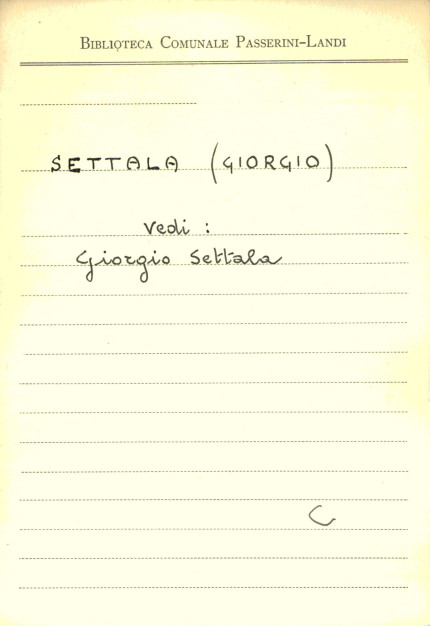 BIBLIOTECA COMUNALE PASSERINI-LANDI
SETTALA (GIORGIO)
vedi :
Giorgio Settala
C